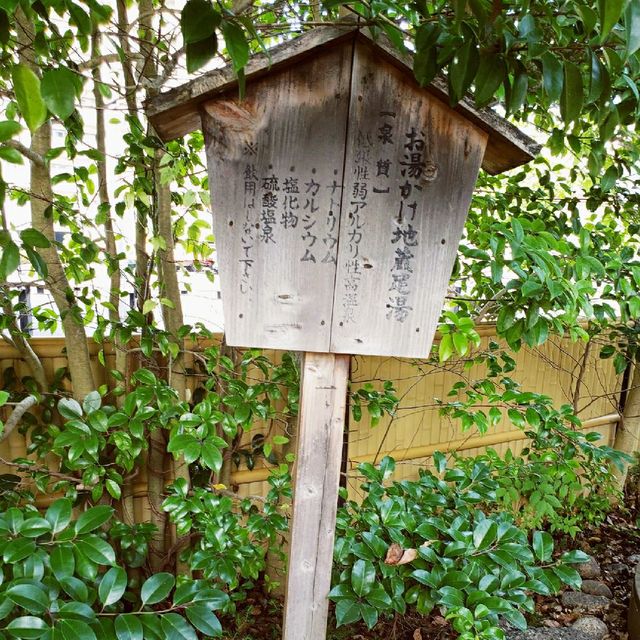 お湯かけ地蔵足湯
【泉質】
低張性弱アルカリ性高温泉
・ナトリウム
・カルシウム
・塩化物
硫酸塩泉
※飲用はしないで下さい。